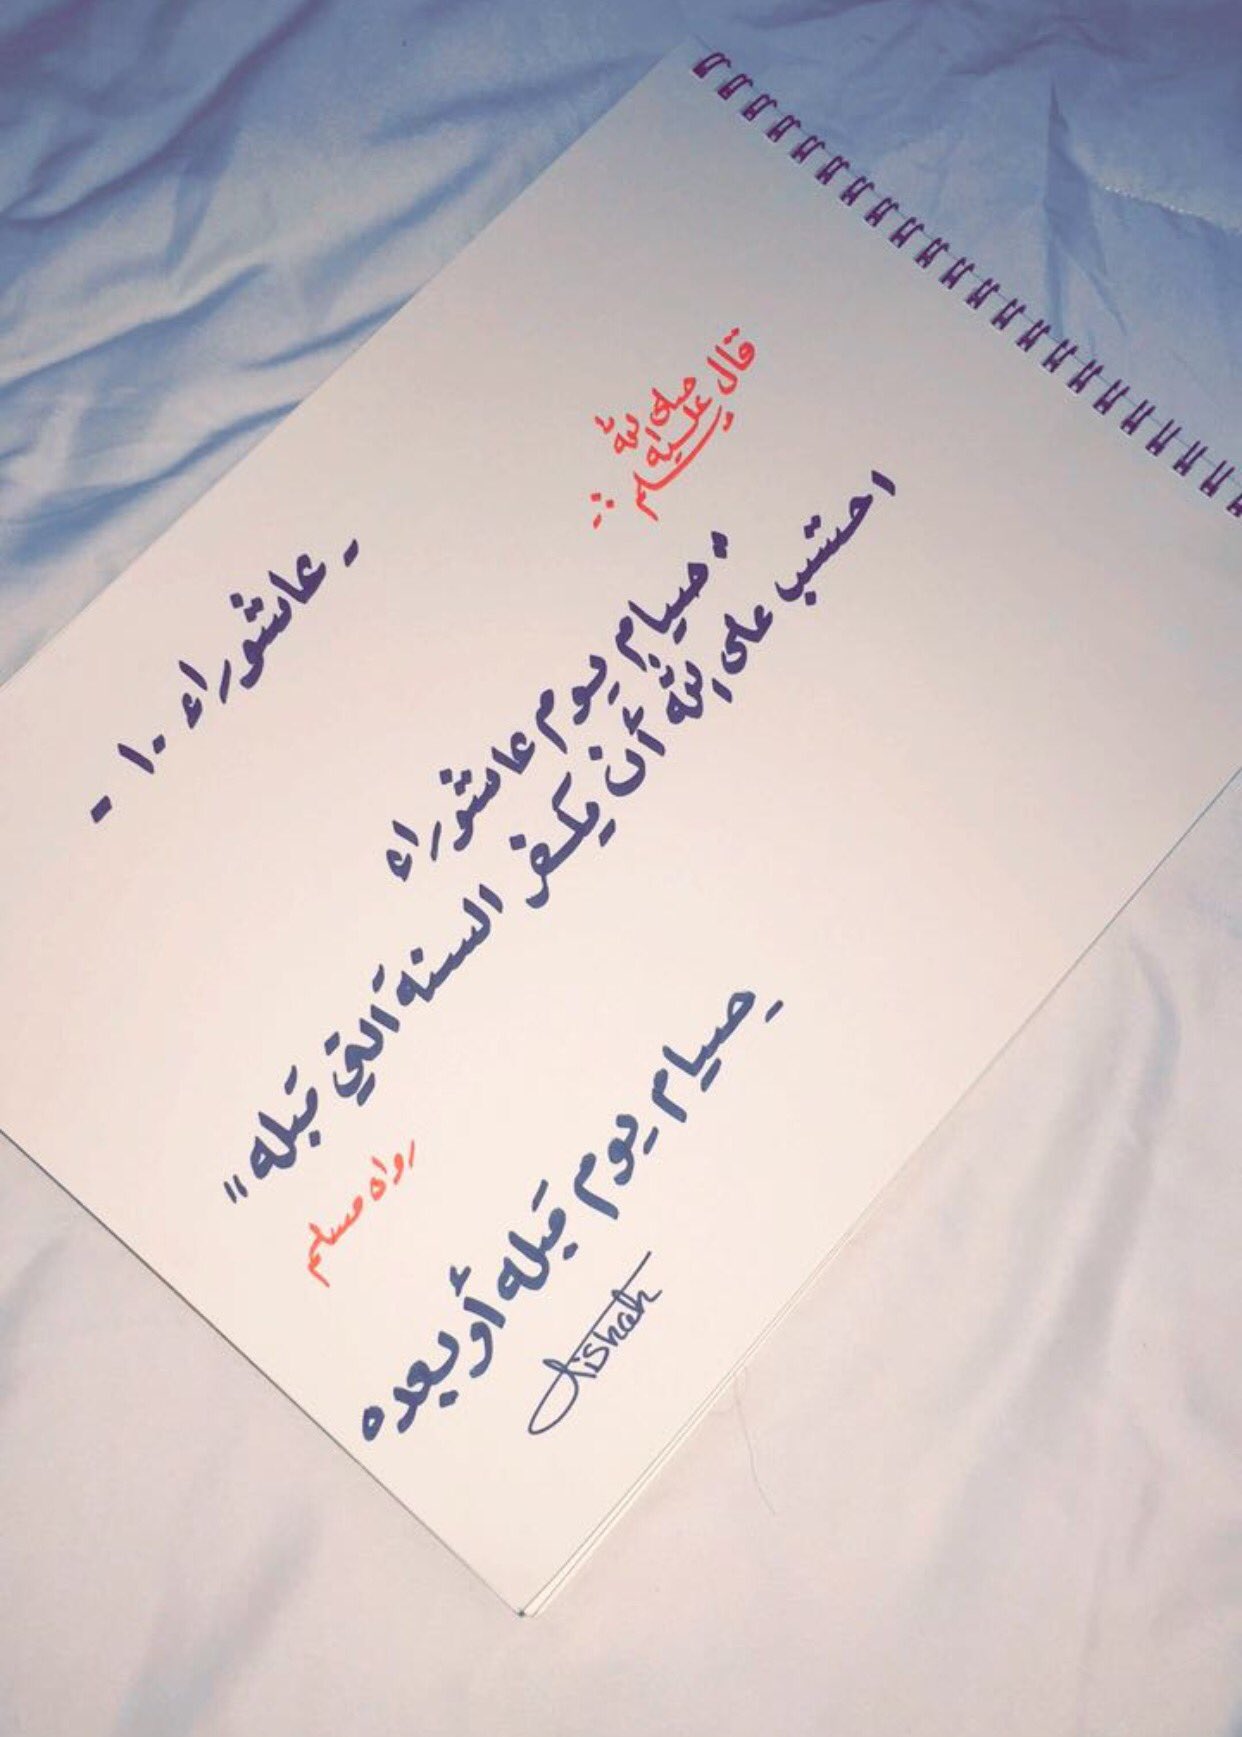 قال صلى الله عليه وسلم :
" صيام يوم عاشوراء
احتسب على الله أن يكفر السنه التي قبله "
رواه مسلم
- عاشوراء ١٠ -
- صيام يوم قبله أو بعده
Aishah